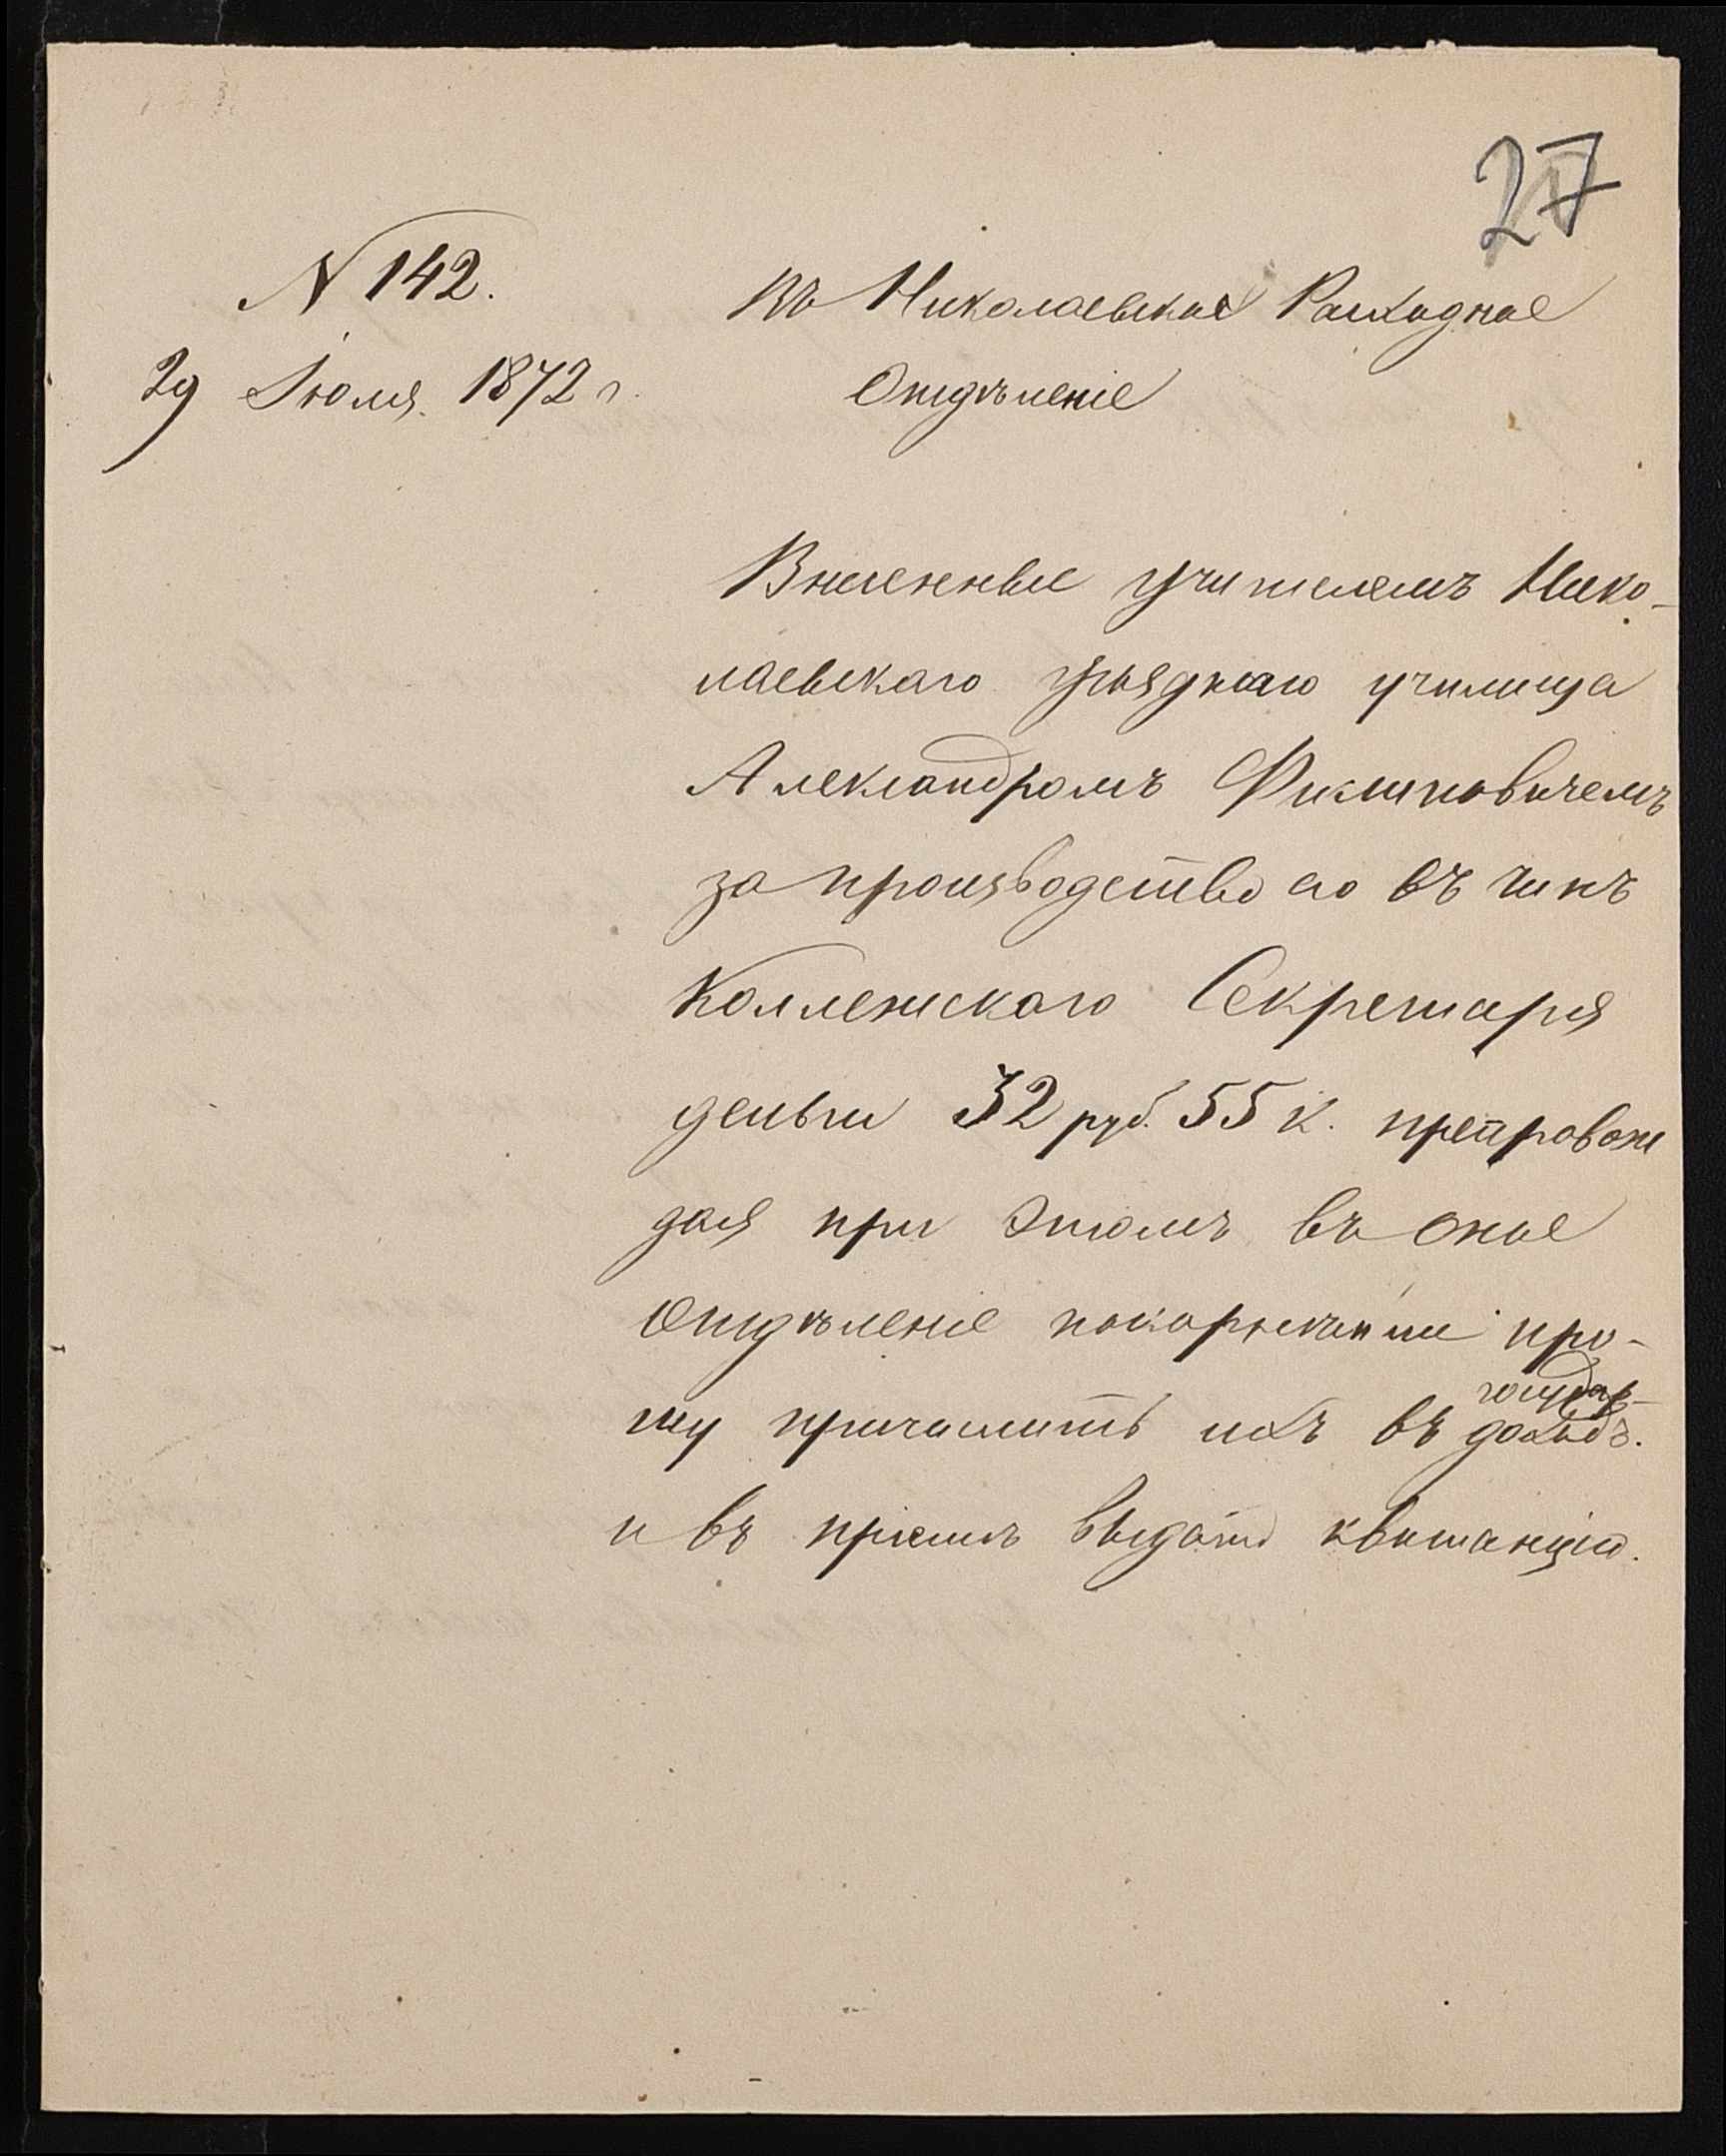 27
N 142.
Въ Николаевское Расходное
29 Іюля 1872 г.
Отдѣленіе
Внесенные учителемъ Нико-
лаевскаго уѣзднаго училища
Александромъ Филиповичемъ
за производство его въ чинъ
Коллежскаго Секретаря
деньги 32 руб. 55 к. препровож
дая при этомъ въ оное
Отдѣленіе покорнѣйше про-
шу причислить ихъ въ государ-
доходъ.
и въ пріемѣ выдать квитанцію.